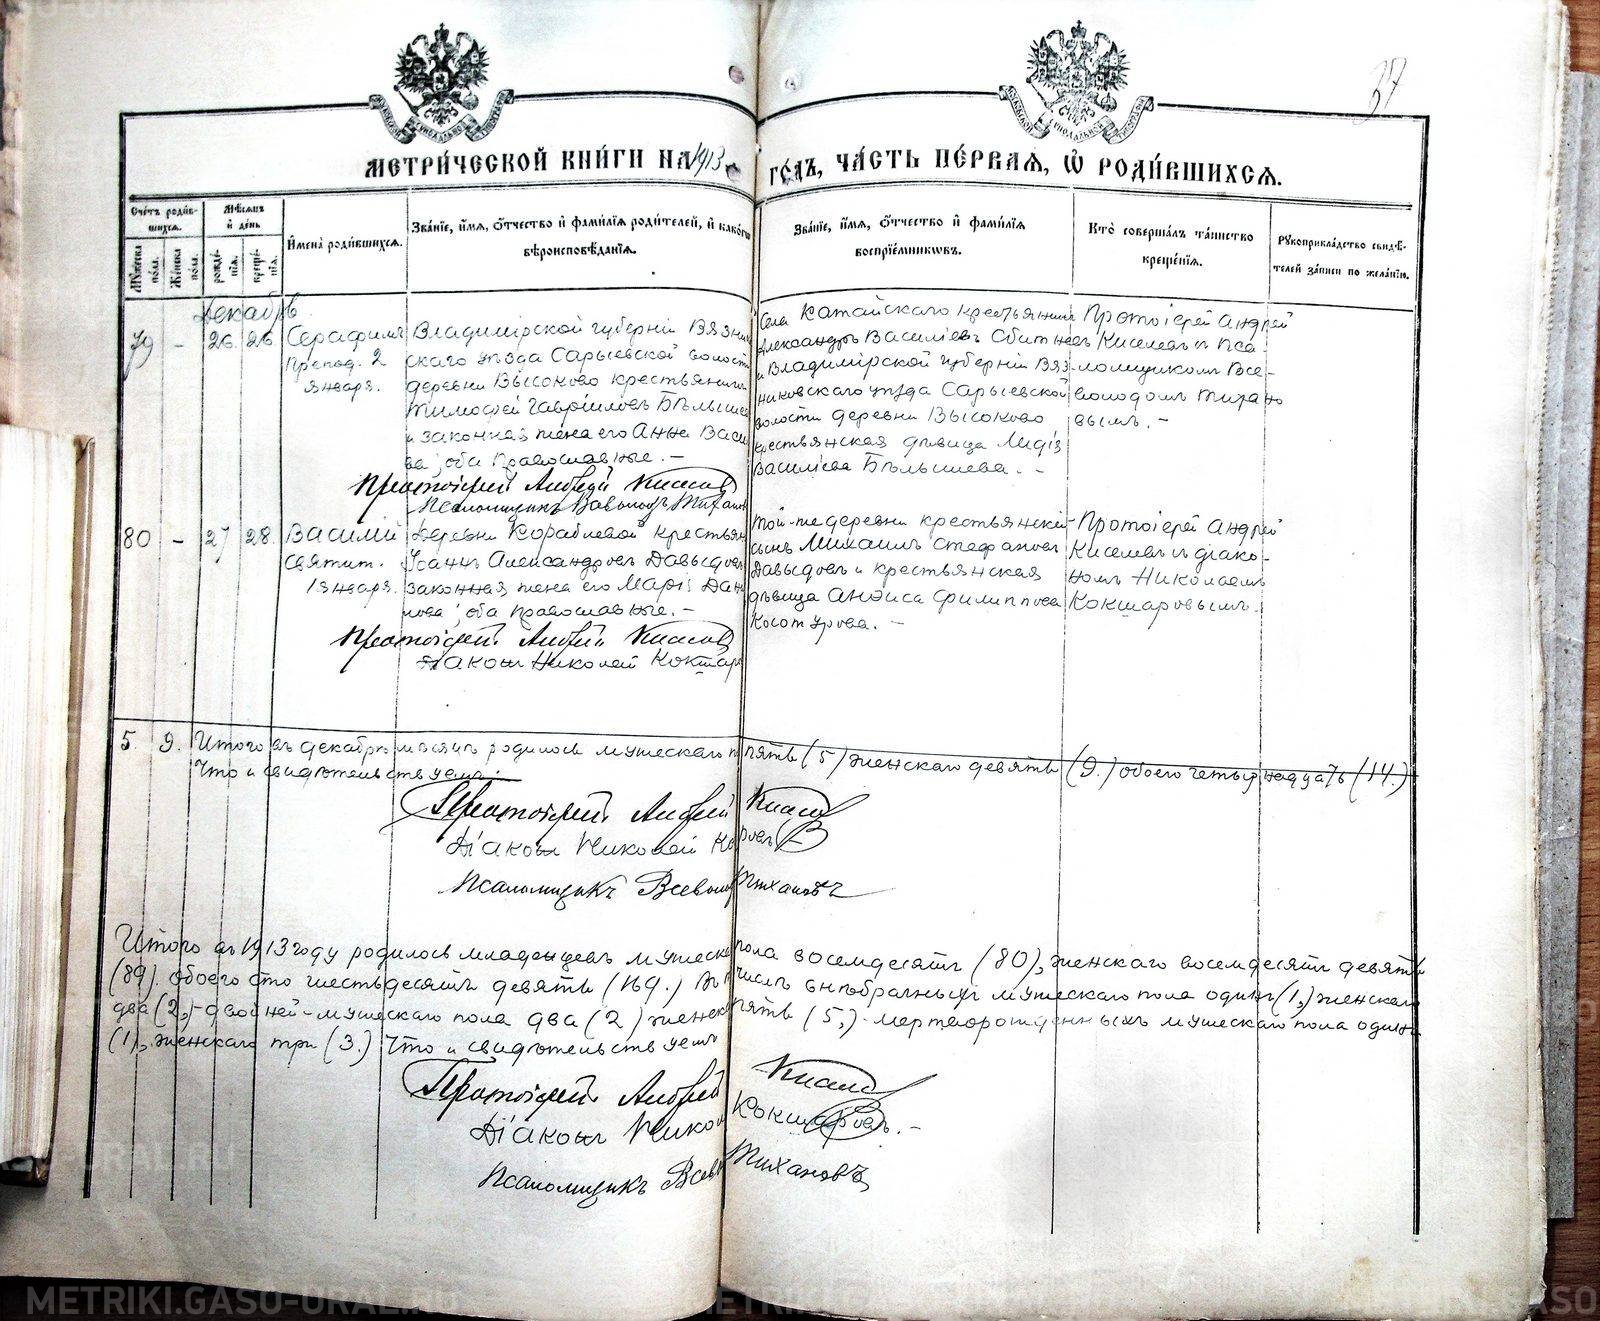 37
МЕТРИ́ЧЕСКОЙ КНИ́ГИ НА 1913 ГО́ДЪ, ЧА́СТЬ ПЕ́РВАЯ, Ѡ҆ РОДИ́ВШИХСЯ.
Сче́тъ роди́вшихся.
Мѣ́сяцъ и҆ де́нь
Му́жеска по́ла.
Же́нска по́ла.
рожде́нїя.
креще́нїя.
И҆мена̀ роди́вшихся.
Зва́нїе, и҆́мя, ѻ҆́тчество и҆ фами́лїя роди́телей, и҆ како́гѡ
вѣроисповѣ́данїя.
Зва́нїе, и҆́мя, ѻ҆́тчество и҆ фами́лїя
воспрїе́мниковъ.
Кто̀ соверша́лъ та́инство
креще́нїя.
Рукоприкла́дство свидѣ́-
телей за́писи по жела́нїю.
Декабрь
79 - 26. 26
Серафимъ
препод. 2
января.
Владимірской губерніи Вязни
скаго уѣзда Сарыевской волост
деревни Высоково крестьянинъ
Тимофей Гавріиловъ Бѣлыше
и законная жена его Анна Васи
ва, оба православные. -
Протоіерей Андрей Киселев
Псаломщикъ Всеволодъ Тихано
Села Катайскаго крестьянинъ
Александръ Василіевъ
и Владимірской губерніи Вяз-
никовскаго уѣзда Сарыевской
волости деревни Высоково
крестьянская дѣвица Лидія
Василіева Бѣлышева. -
Протоіерей Андрей
Киселевъ и пса-
ломщикомъ Все-
володомъ Тихано
вымъ. -
80 - 27 28.
Василій
святит.
1 января.
Деревни Кораблевой крестьян
Іоаннъ Александровъ Давыдовъ
законная жена его Марія Дан
лова, оба православные. -
Протоіерей Андрей Киселев
Діаконъ Николай Кокшар
Той-же деревни крестьянскій
сынъ Михаилъ Стефановъ
Давыдовъ и крестьянская
дѣвица Анѳиса Филиппова
Косотурова. -
Протоіерей Андрей
Киселевъ и діако-
номъ Николаемъ
Кокшаровымъ.
5. 9. Итого въ декабрѣ мѣсяцѣ родилось мужескаго п пять (5) женскаго девять (9.) обоего четырнадцать (14.)
Что и свидѣтельствуемъ:
Протоіерей Андрей Киселев
Діаконъ Николай Ко ровъ
Псаломщикъ Всеволод Тихановъ
Итого въ 1913 году родилось младенцевъ мужеска пола восемдесятъ (80), женскаго восемдесятъ девять
(89). обоего сто шестьдесятъ девять (169.) Въ т числѣ внѣбрачныхъ мужескаго пола одинъ (1,) женскаго
два (2,) - двойней - мужескаго пола два (2) женск пять (5,) - мертворожденныхъ мужескаго пола одинъ
(1), женскаго три (3.) Что и свидѣтельствуемъ
Протоіерей Андрей Киселев
Діаконъ Нико Кокшаровъ. -
Псаломщикъ Всев Тихановъ
METRIKI.GASO-URAL.RU
METRIKI.GASO